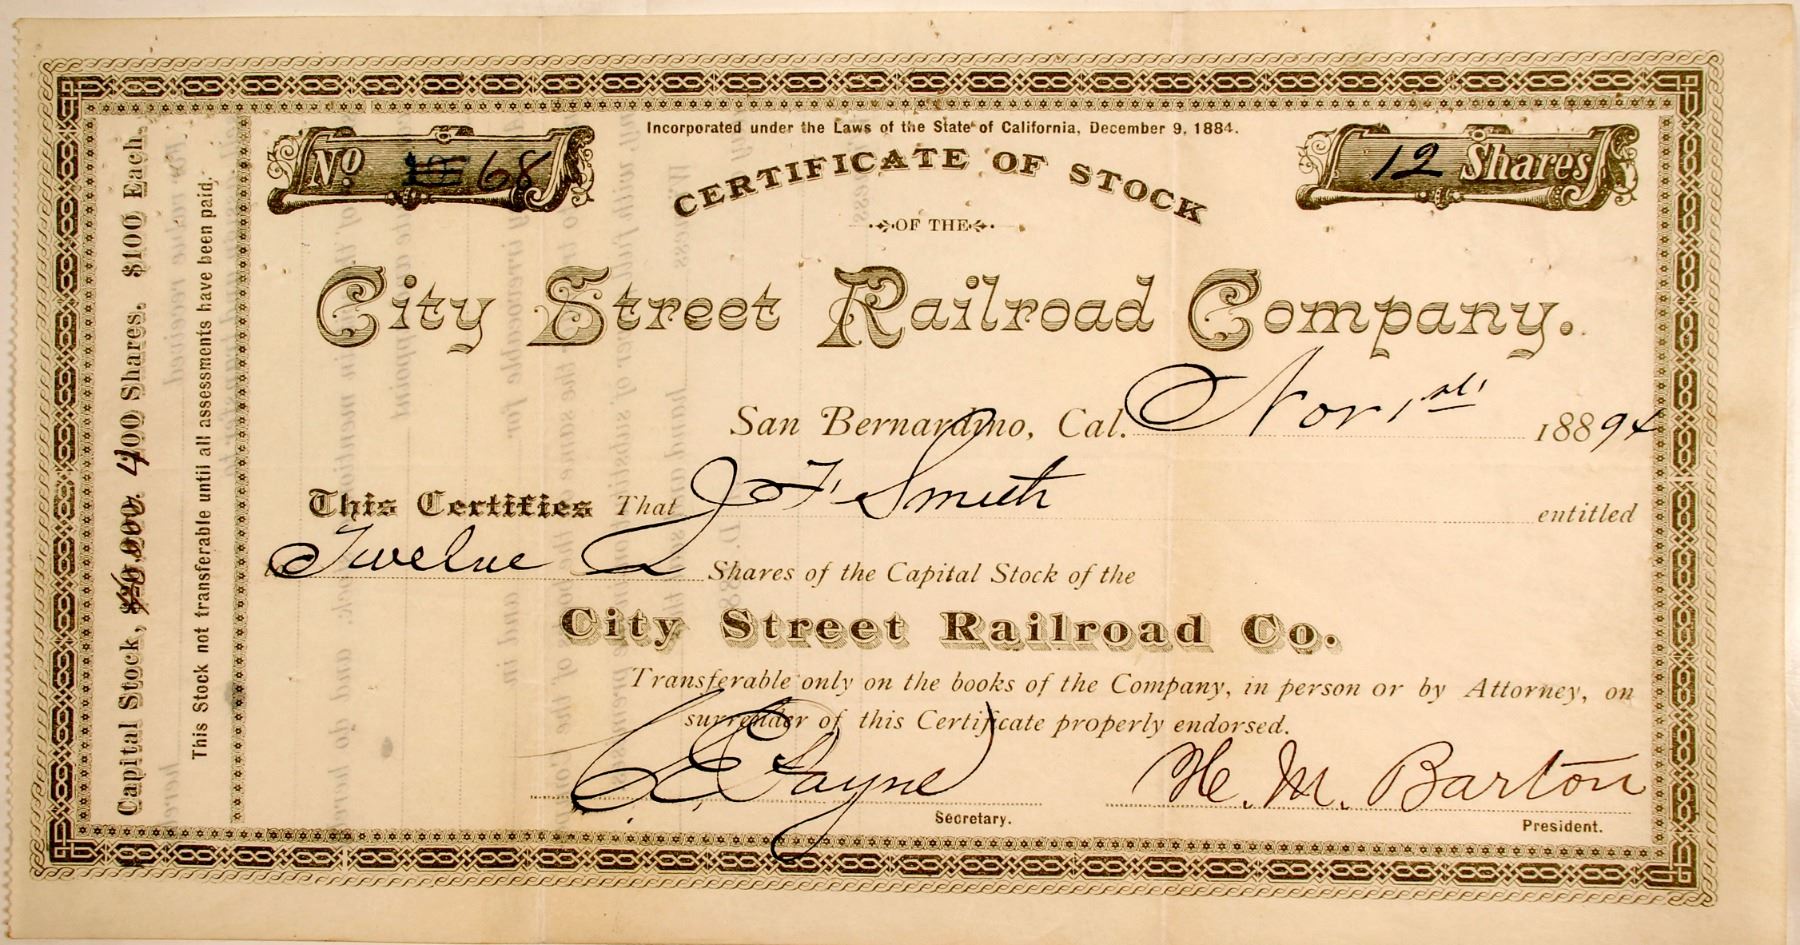 Incorporated under the Laws of the State of California, December 9, 1884.
No 68
CERTIFICATE OF STOCK
12 Shares
OF THE
City Street Railroad Company.
San Bernardino, Cal. Nov 1st 18894
This Certifies That J F Smith entitled
to Twelve Shares of the Capital Stock of the
City Street Railroad Co.
Transferable only on the books of the Company, in person or by Attorney, on
surrender of this Certificate properly endorsed.
Payne
Secretary.
H. M. Barton
President.
Capital Stock, 400 Shares. $100 Each.
This Stock not transferable until all assessments have been paid.